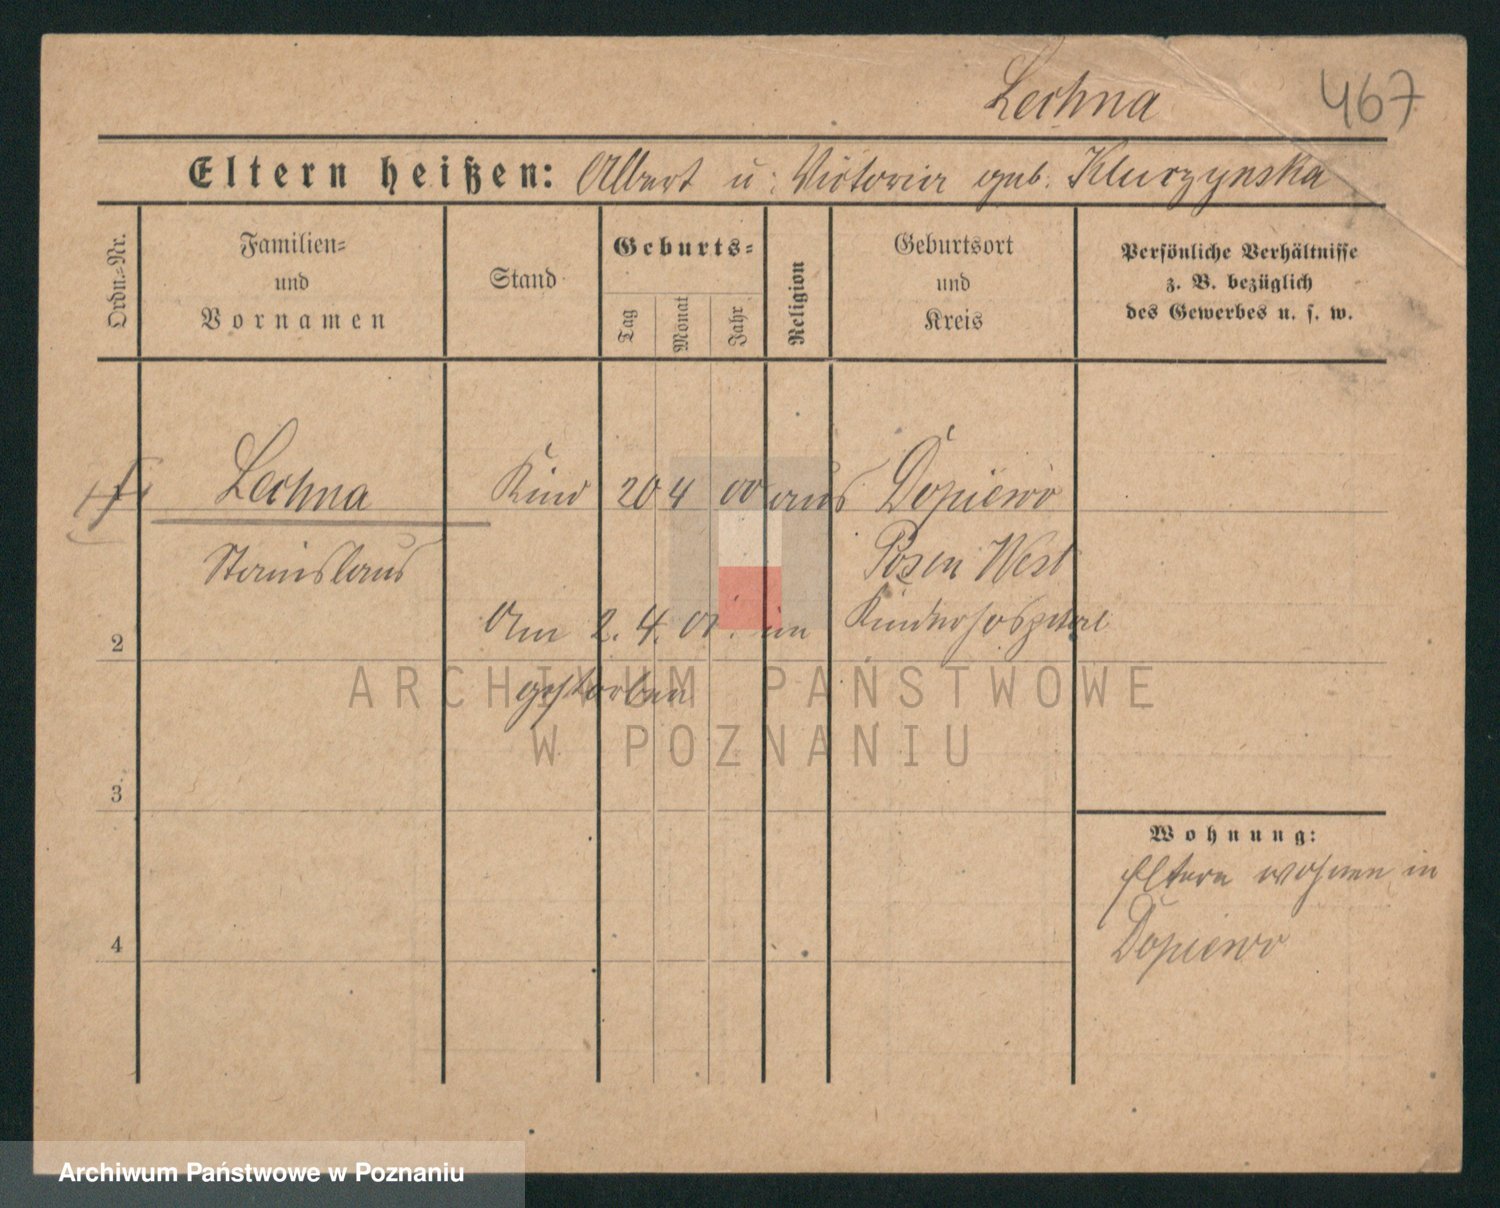 Lechna
467
Eltern heißen: Albert u. Victoria geb. Kluczynska
Ordn.-Nr.
Familien-
und
Vornamen
Stand
Geburts-
Tag
Monat
Jahr
Religion
Geburtsort
und
Kreis
Persönliche Verhältnisse
z. B. bezüglich
des Gewerbes u. s. w.
Lechna Kind 20 4 00 aus Dopiewo
Stanislaus Posen West
2 Am 2. 4. 01. im Kinderhospital
gestorben
ARCHIWUM PAŃSTWOWE
W POZNANIU
3
Wohnung:
Eltern wohnen in
4 Dopiewo
Archiwum Państwowe w Poznaniu